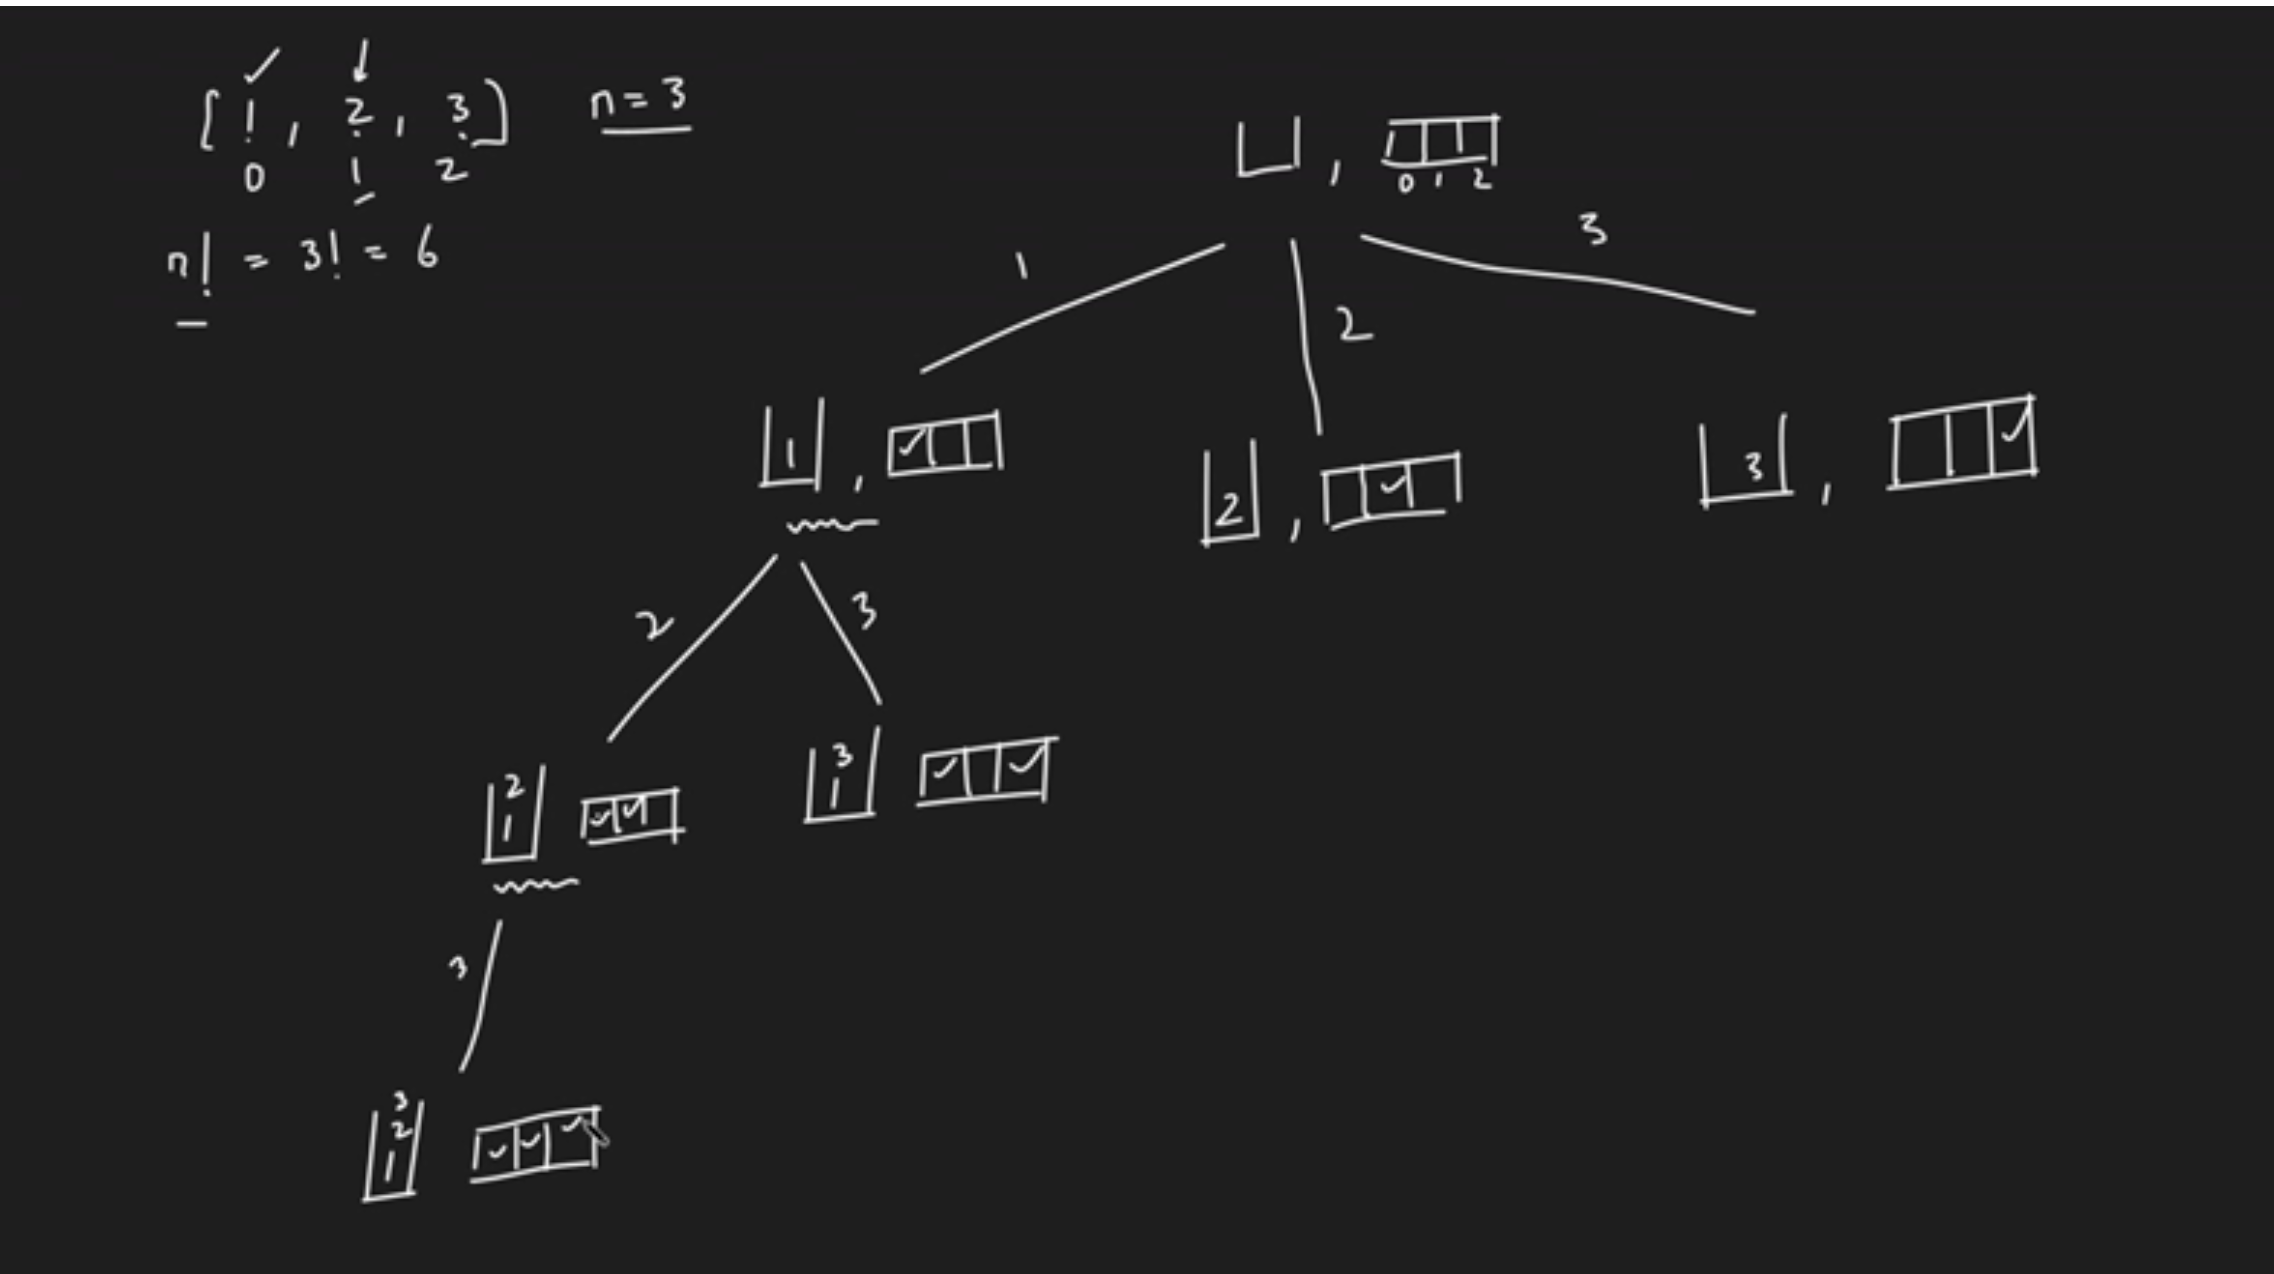 [ 1 , 2 , 3 ] n = 3
0 1 2
n! = 3! = 6
,
0 1 2
1
2
3
1 ,
2 ,
3 ,
2
3
2
1
3
1
3
3
2
1